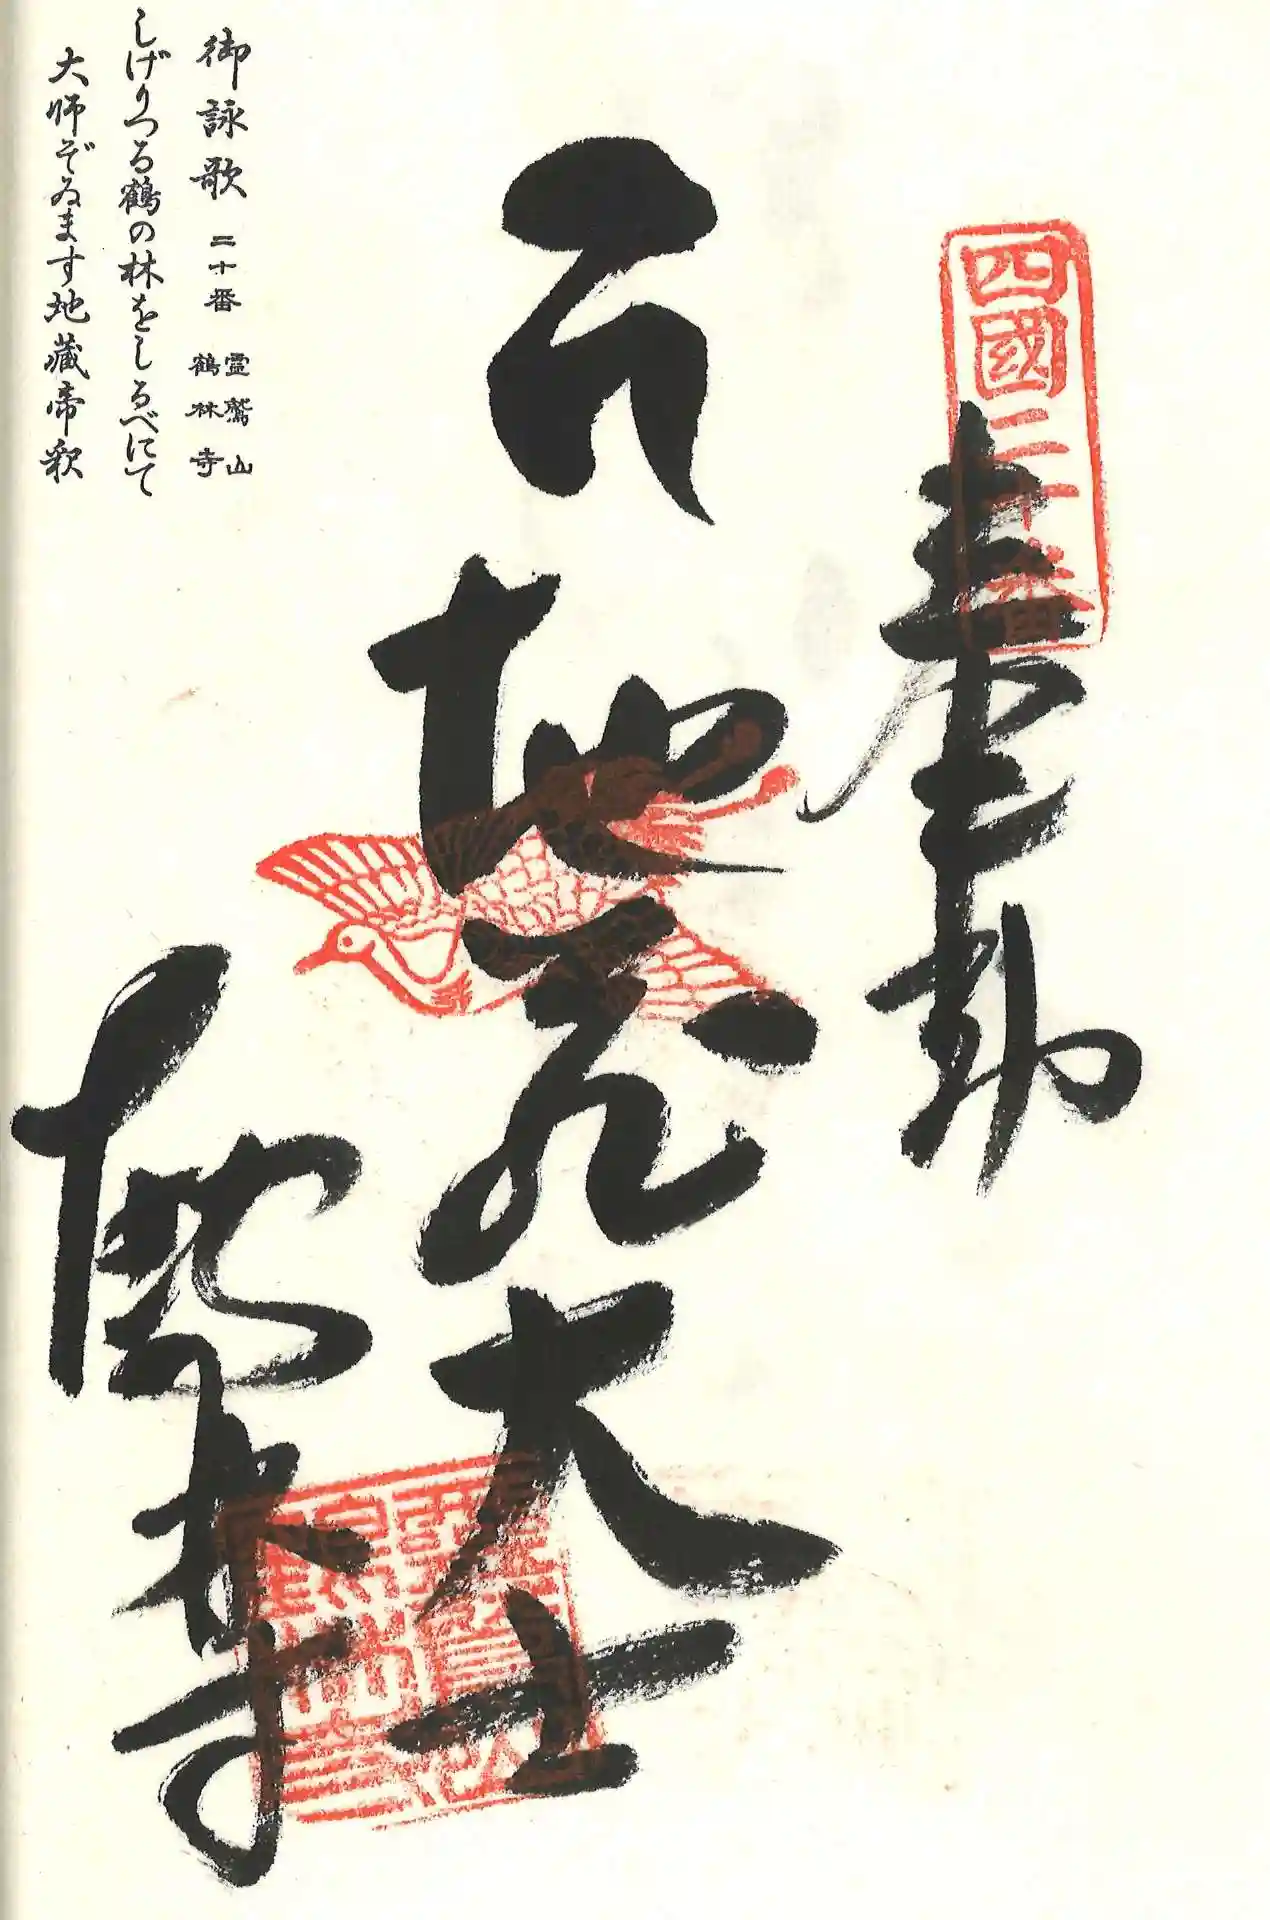 四國二十番
奉重勅
地蔵大士
鶴林寺
御詠歌 二十番 霊鷲山 鶴林寺
しげりつる鶴の林をしるべにて
大師ぞゐます地蔵帝釈